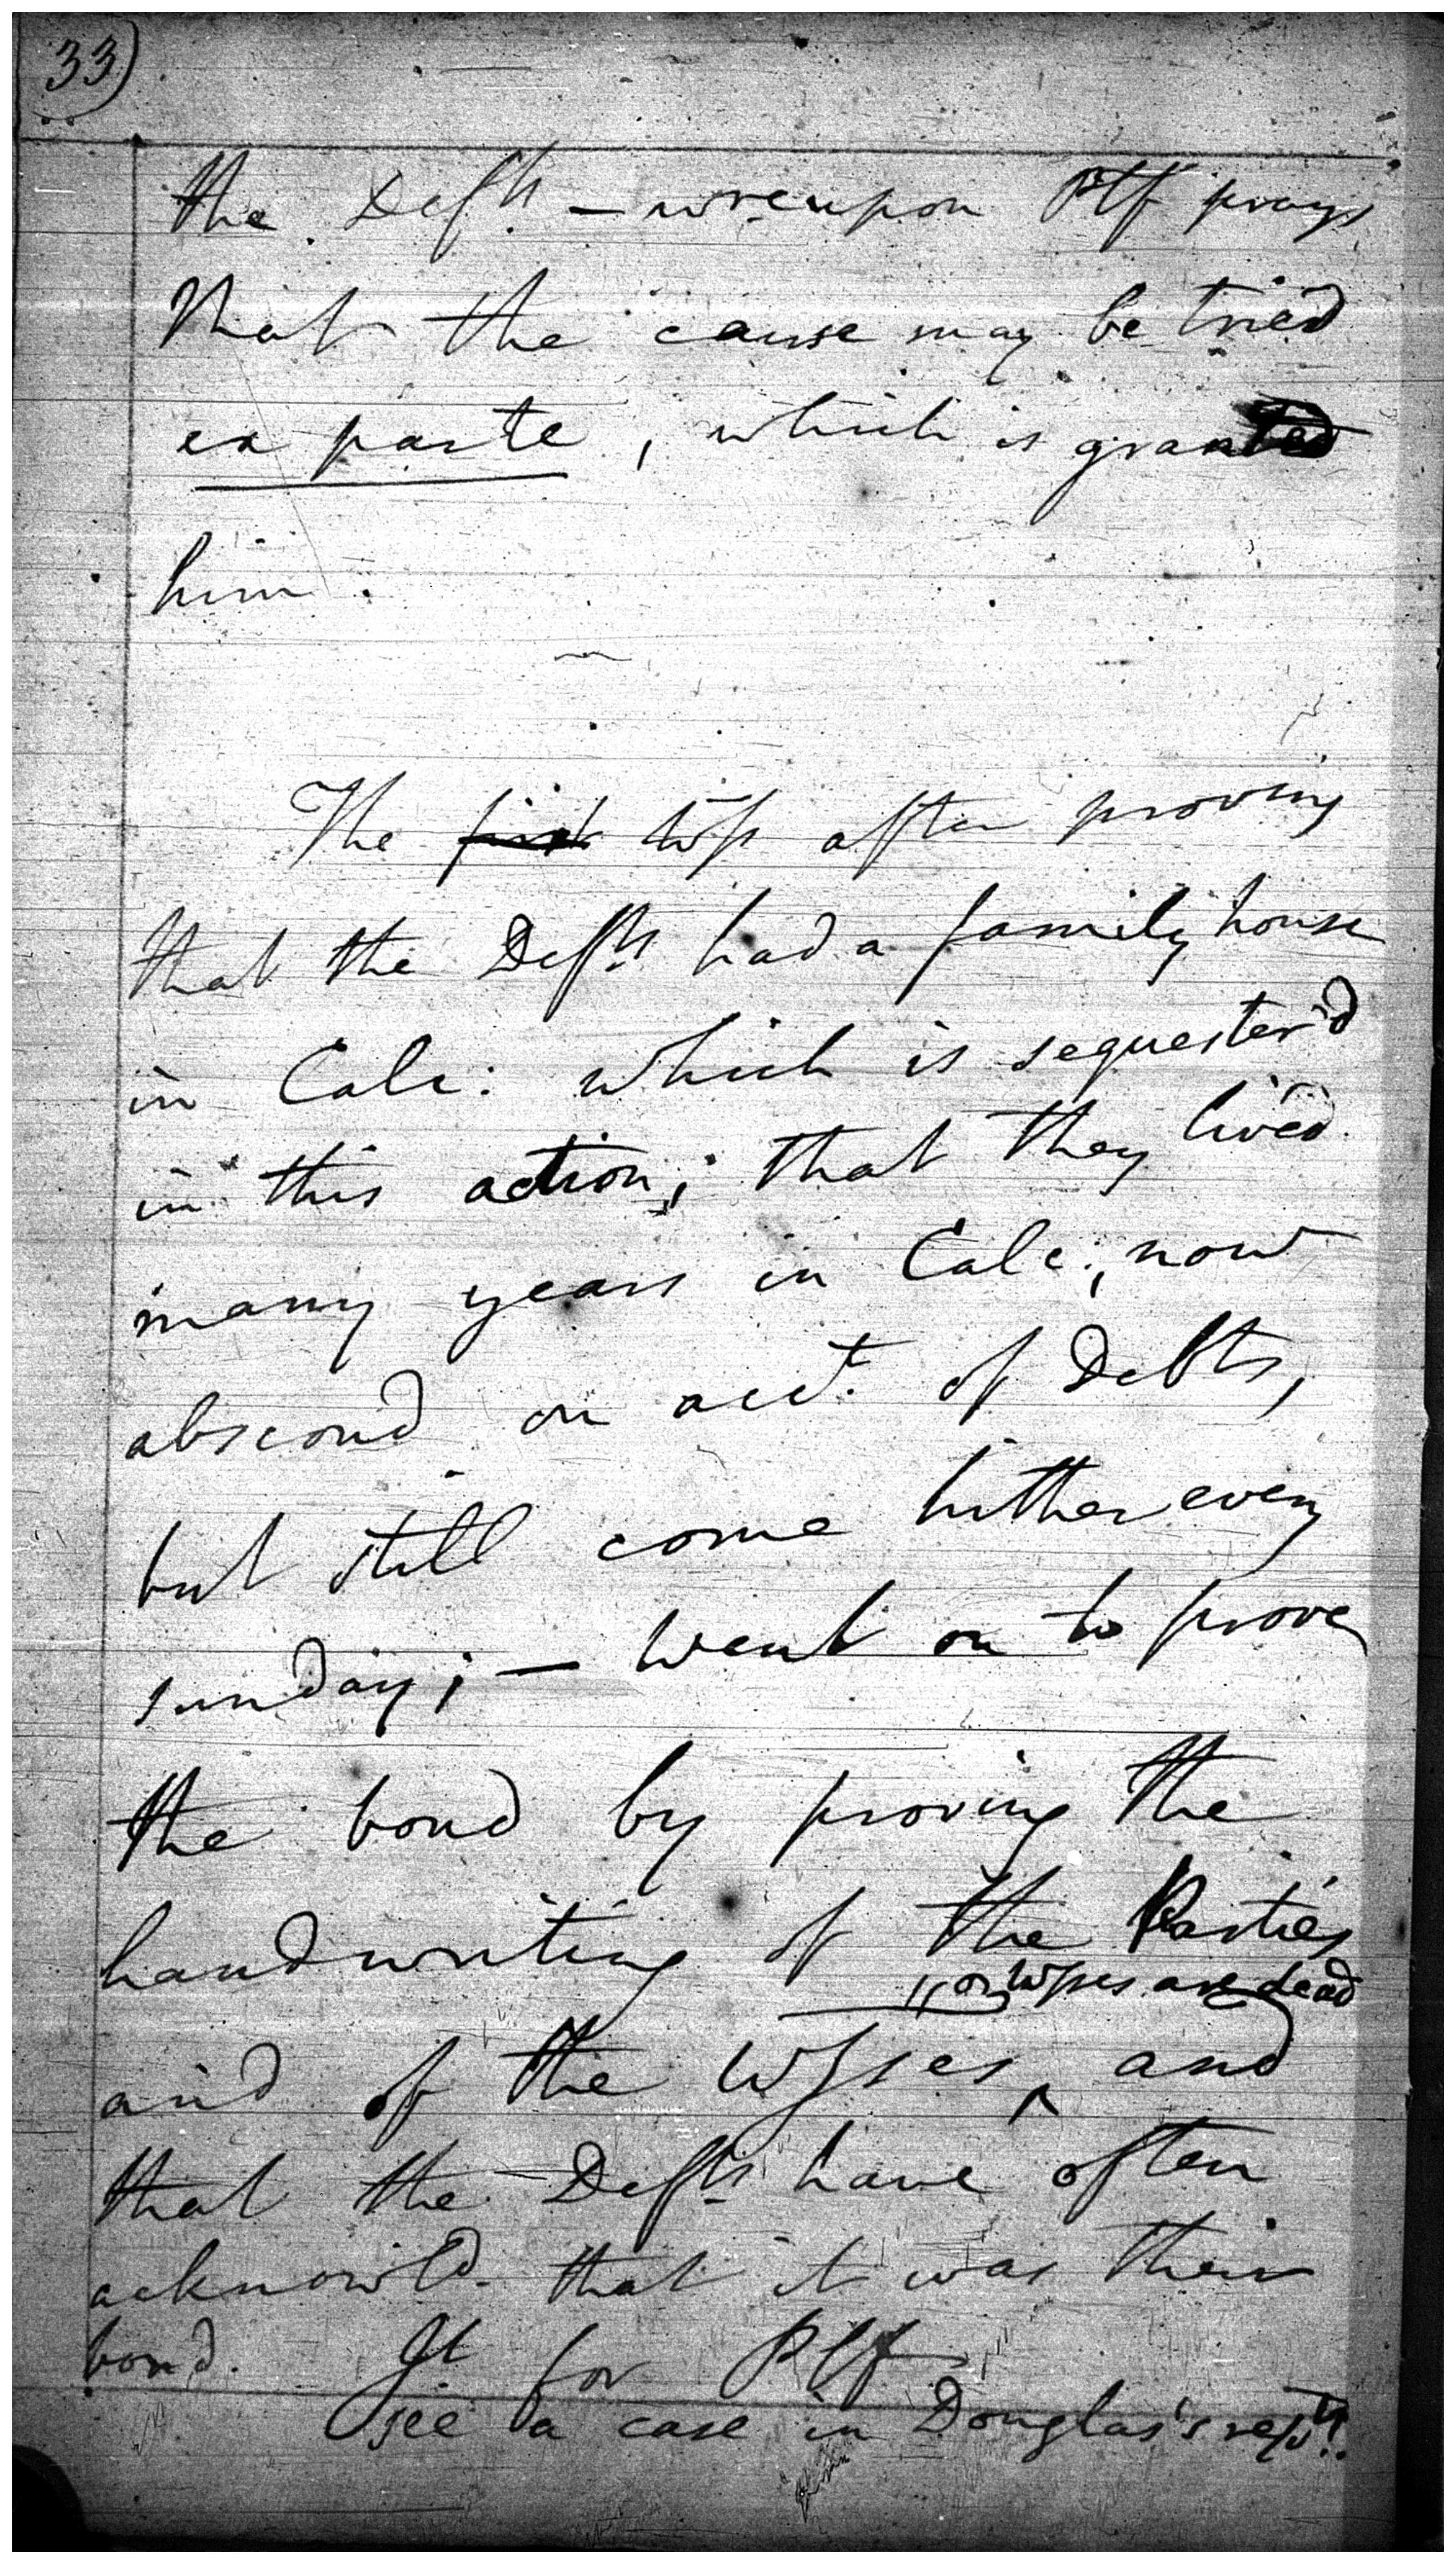 33)
the Defts — wreupon Plf prays
that the cause may be tried
ex parte, which is granted
him.
The first Wss after proving
that the Defts had a family house
in Calc: which is sequester'd
in this action; that they lived
many years in Calc:, now
abscond on acct. of Debts,
but still come hither every
sunday; — went on to prove
the bond by proving the
handwriting of the Parties
Wsses are dead
and of the Wsses, and
that the Defts have often
acknowld. that it was their
bond. Jt for Plf
see a case in Douglas's repts.